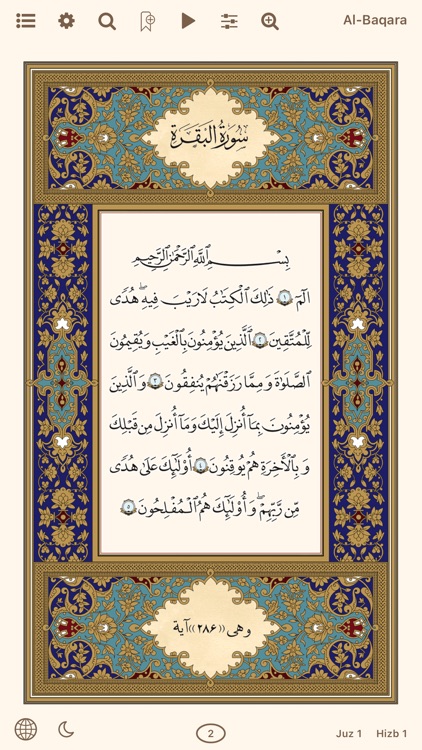 Al-Baqara
سُورَةُ الْبَقَرَةِ
بِسْمِ ٱللَّهِ ٱلرَّحْمَٰنِ ٱلرَّحِيمِ
الٓمٓ ۝١ ذَٰلِكَ ٱلْكِتَٰبُ لَا رَيْبَ ۛ فِيهِ ۛ هُدًى
لِّلْمُتَّقِينَ ۝٢ ٱلَّذِينَ يُؤْمِنُونَ بِٱلْغَيْبِ وَيُقِيمُونَ
ٱلصَّلَوٰةَ وَمِمَّا رَزَقْنَٰهُمْ يُنفِقُونَ ۝٣ وَٱلَّذِينَ
يُؤْمِنُونَ بِمَآ أُنزِلَ إِلَيْكَ وَمَآ أُنزِلَ مِن قَبْلِكَ
وَبِٱلْأَخِرَةِ هُمْ يُوقِنُونَ ۝٤ أُو۟لَٰٓئِكَ عَلَىٰ هُدًى
مِّن رَّبِّهِمْ ۖ وَأُو۟لَٰٓئِكَ هُمُ ٱلْمُفْلِحُونَ ۝٥
وهى ((٢٨٦)) آية
2
Juz 1 Hizb 1